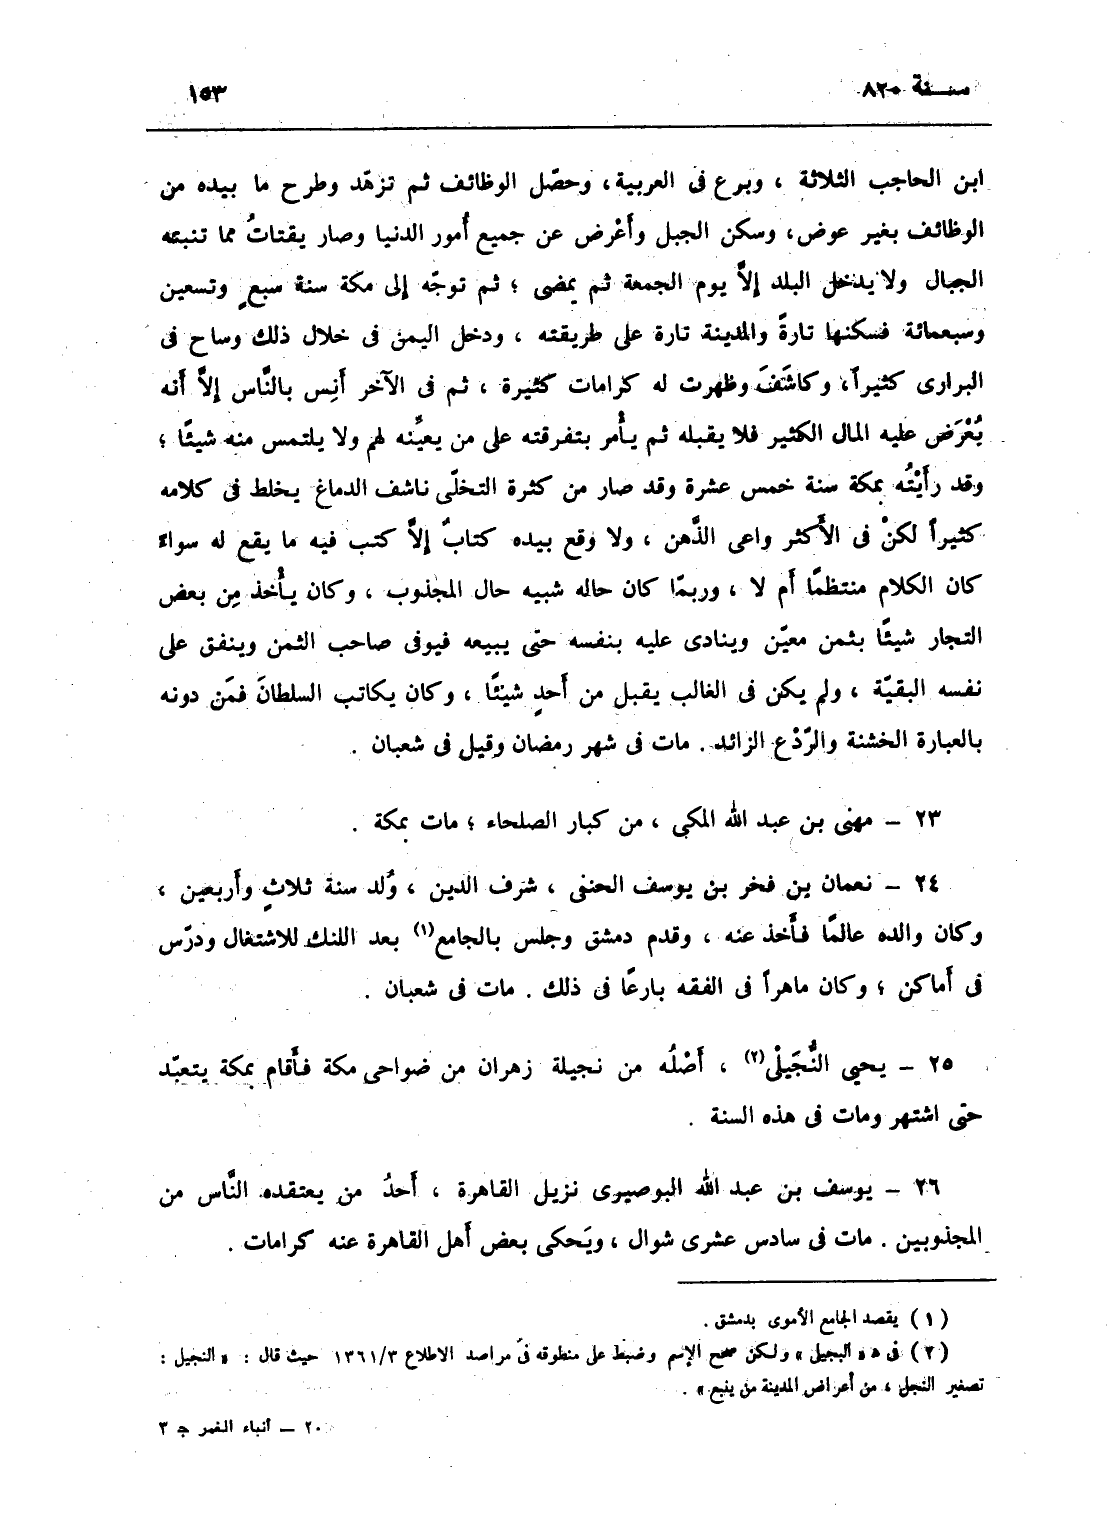 سنة ٨٢٠
١٥٣
ابن الحاجب الثلاثة ، وبرع فى العربية، وحصّل الوظائف ثم تزهّد وطرح ما بيده من
الوظائف بغير عوض، وسكن الجبل وأَعْرض عن جميع أُمور الدنيا وصار يقتاتُ مما تنبته
الجبال ولا يدخل البلد إلاَّ يوم الجمعة ثم يمضى ؛ ثم توجّه إلى مكة سنة سبعٍ وتسعين
وسبعمائة فسكنها تارةً والمدينة تارة على طريقته ، ودخل اليمن فى خلال ذلك وساح فى
البرارى كثيراً، وكاشَفَ وظهرت له كرامات كثيرة ، ثم فى الآخر أَنِس بالنَّاس إلاَّ أنه
يُعْرَض عليه المال الكثير فلا يقبله ثم يأْمر بتفرقته على من يعيّنه لهم ولا يلتمس منه شيئًا ؛
وقد رأَيْتُه بمكة سنة خمس عشرة وقد صار من كثرة التخلّى ناشف الدماغ يخلط فى كلامه
كثيراً لكنْ فى الأَكثر واعى الذَّهن ، ولا وقع بيده كتابٌ إلاَّ كتب فيه ما يقع له سواءً
كان الكلام منتظمًا أَم لا ، وربمّا كان حاله شبيه حال المجذوب ، وكان يأْخذ مِن بعض
التجار شيئًا بثمن معيّن وينادى عليه بنفسه حتى يبيعه فيوفى صاحب الثمن وينفق على
نفسه البقيّة ، ولم يكن فى الغالب يقبل من أَحدٍ شيئًا ، وكان يكاتب السلطانَ فمَن دونه
بالعبارة الخشنة والرّدْع الزائد . مات فى شهر رمضان وقيل فى شعبان .
٢٣ – مهنى بن عبد الله المكى ، من كبار الصلحاء ؛ مات بمكة .
٢٤ – نعمان بن فخر بن يوسف الحنفى ، شرف الدين ، وُلد سنة ثلاثٍ وأَربعين ،
وكان والده عالمًا فأَخذ عنه ، وقدم دمشق وجلس بالجامع(١) بعد اللنك للاشتغال ودرّس
فى أَماكن ؛ وكان ماهراً فى الفقه بارعًا فى ذلك . مات فى شعبان .
٢٥ – يحيى النُّجَيلْى(٢) ، أَصْلُه من نجيلة زهران من ضواحى مكة فأَقام بمكة يتعبّد
حتّى اشتهر ومات فى هذه السنة .
٢٦ – يوسف بن عبد الله البوصيرى نزيل القاهرة ، أَحدُ من يعتقده النَّاس من
المجذوبين . مات فى سادس عشرى شوال ، ويَحكى بعض أَهل القاهرة عنه كرامات .
(١) يقصد الجامع الأموى بدمشق .
(٢) فى ﻫ « البجيل » ولكن صحح الإسم وضبط على منطوقه فى مراصد الاطلاع ١٣٦١/٣ حيث قال : « النجيل :
تصغير النجل ، من أعراض المدينة من ينبع » .
٢٠ – أنباء الغمر ج ٣